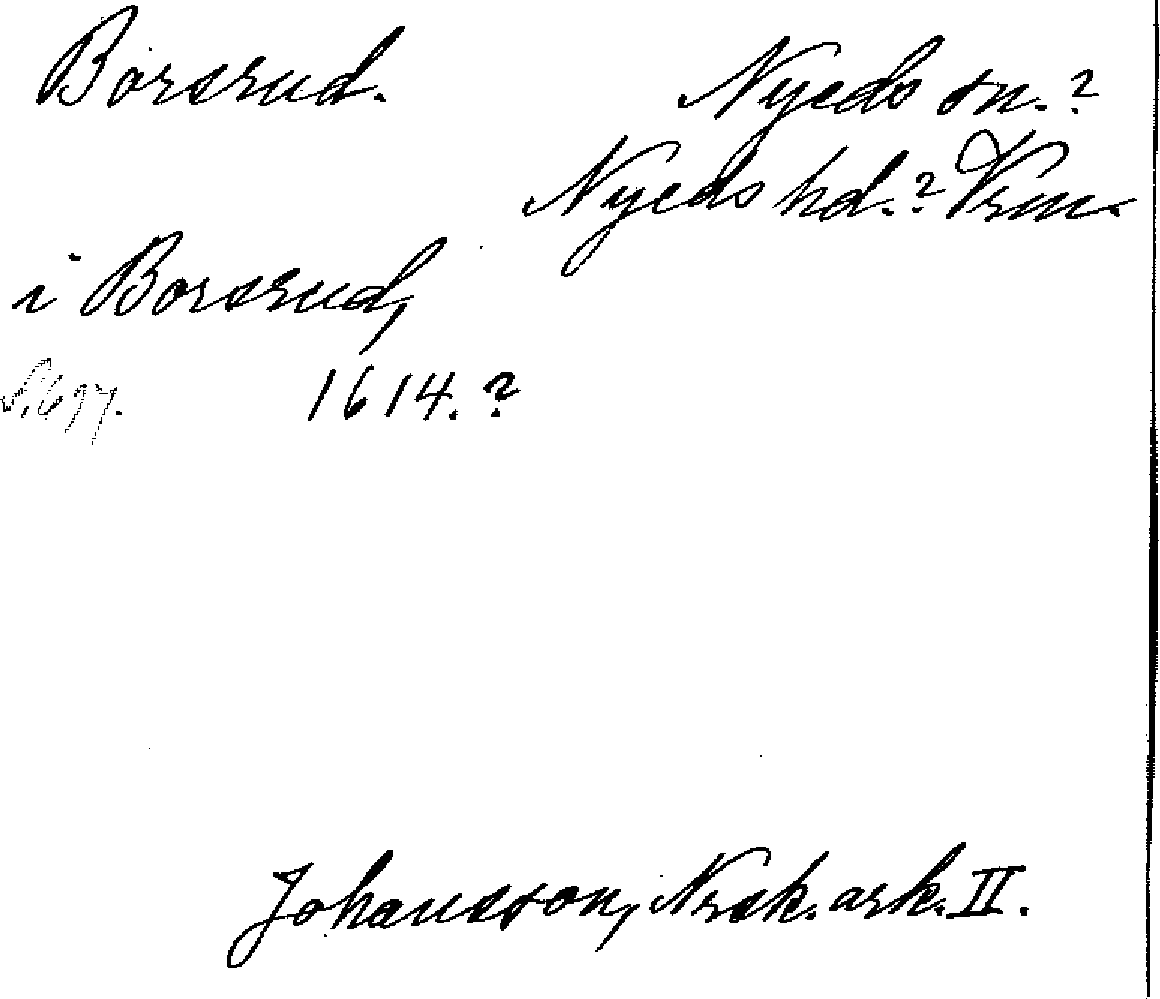 Borsrud. Nyeds sn.?
Nyeds hd.? Vrm.
i Borsrud,
S. 697. 1614.?
Johansson, Nrsk. ark. II.